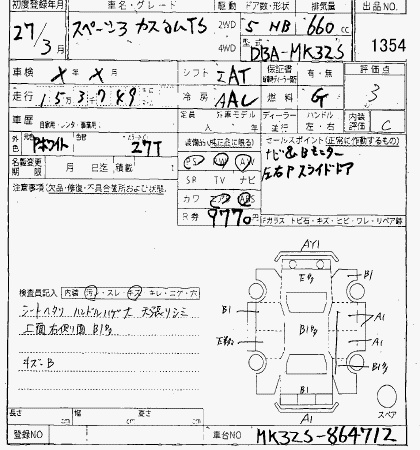 初度登録年月 車名・グレード 駆動 ドア数・形状 排気量 出品NO.
27/3月 スペーシア カスタムTS 2WD 4WD 5 HB 660 cc
型式 DBA-MK32S 1354
車検 X年X月 シフト IAT 保証書 有・無 評価点
走行 153749 冷房 AAC 燃料 G 3
車歴 自家用・レンタ・事業用 定員 人 外車モデル 年 ディーラー 並行 ハンドル 左・右 内装評価 C
外色 Pホワイト 27T 装備品(純正品に限る) セールスポイント(正常に作動するもの)
名義変更期限 月 日迄 積載 PS PW AW ナビ&Bモニター
注意事項(欠品・修復・不具合箇所および状態) SR TV ナビ 左右Pスライドドア
カワ エアB ABS
R券 9770円 Fガラス トビ石・キズ・ヒビ・ワレ・リペア跡
AY1
B1
検査員記入 内装 汚レ・スレ・キズ・キレ・コゲ・穴
B1
A1
シートヘタリ ハンドルハゲ大 天張りシミ
A1
上面右側面B1多
キズ-B
B1
A1
スペア
長さ cm 幅 cm 高さ cm
登録NO 車台NO MK32S-864712